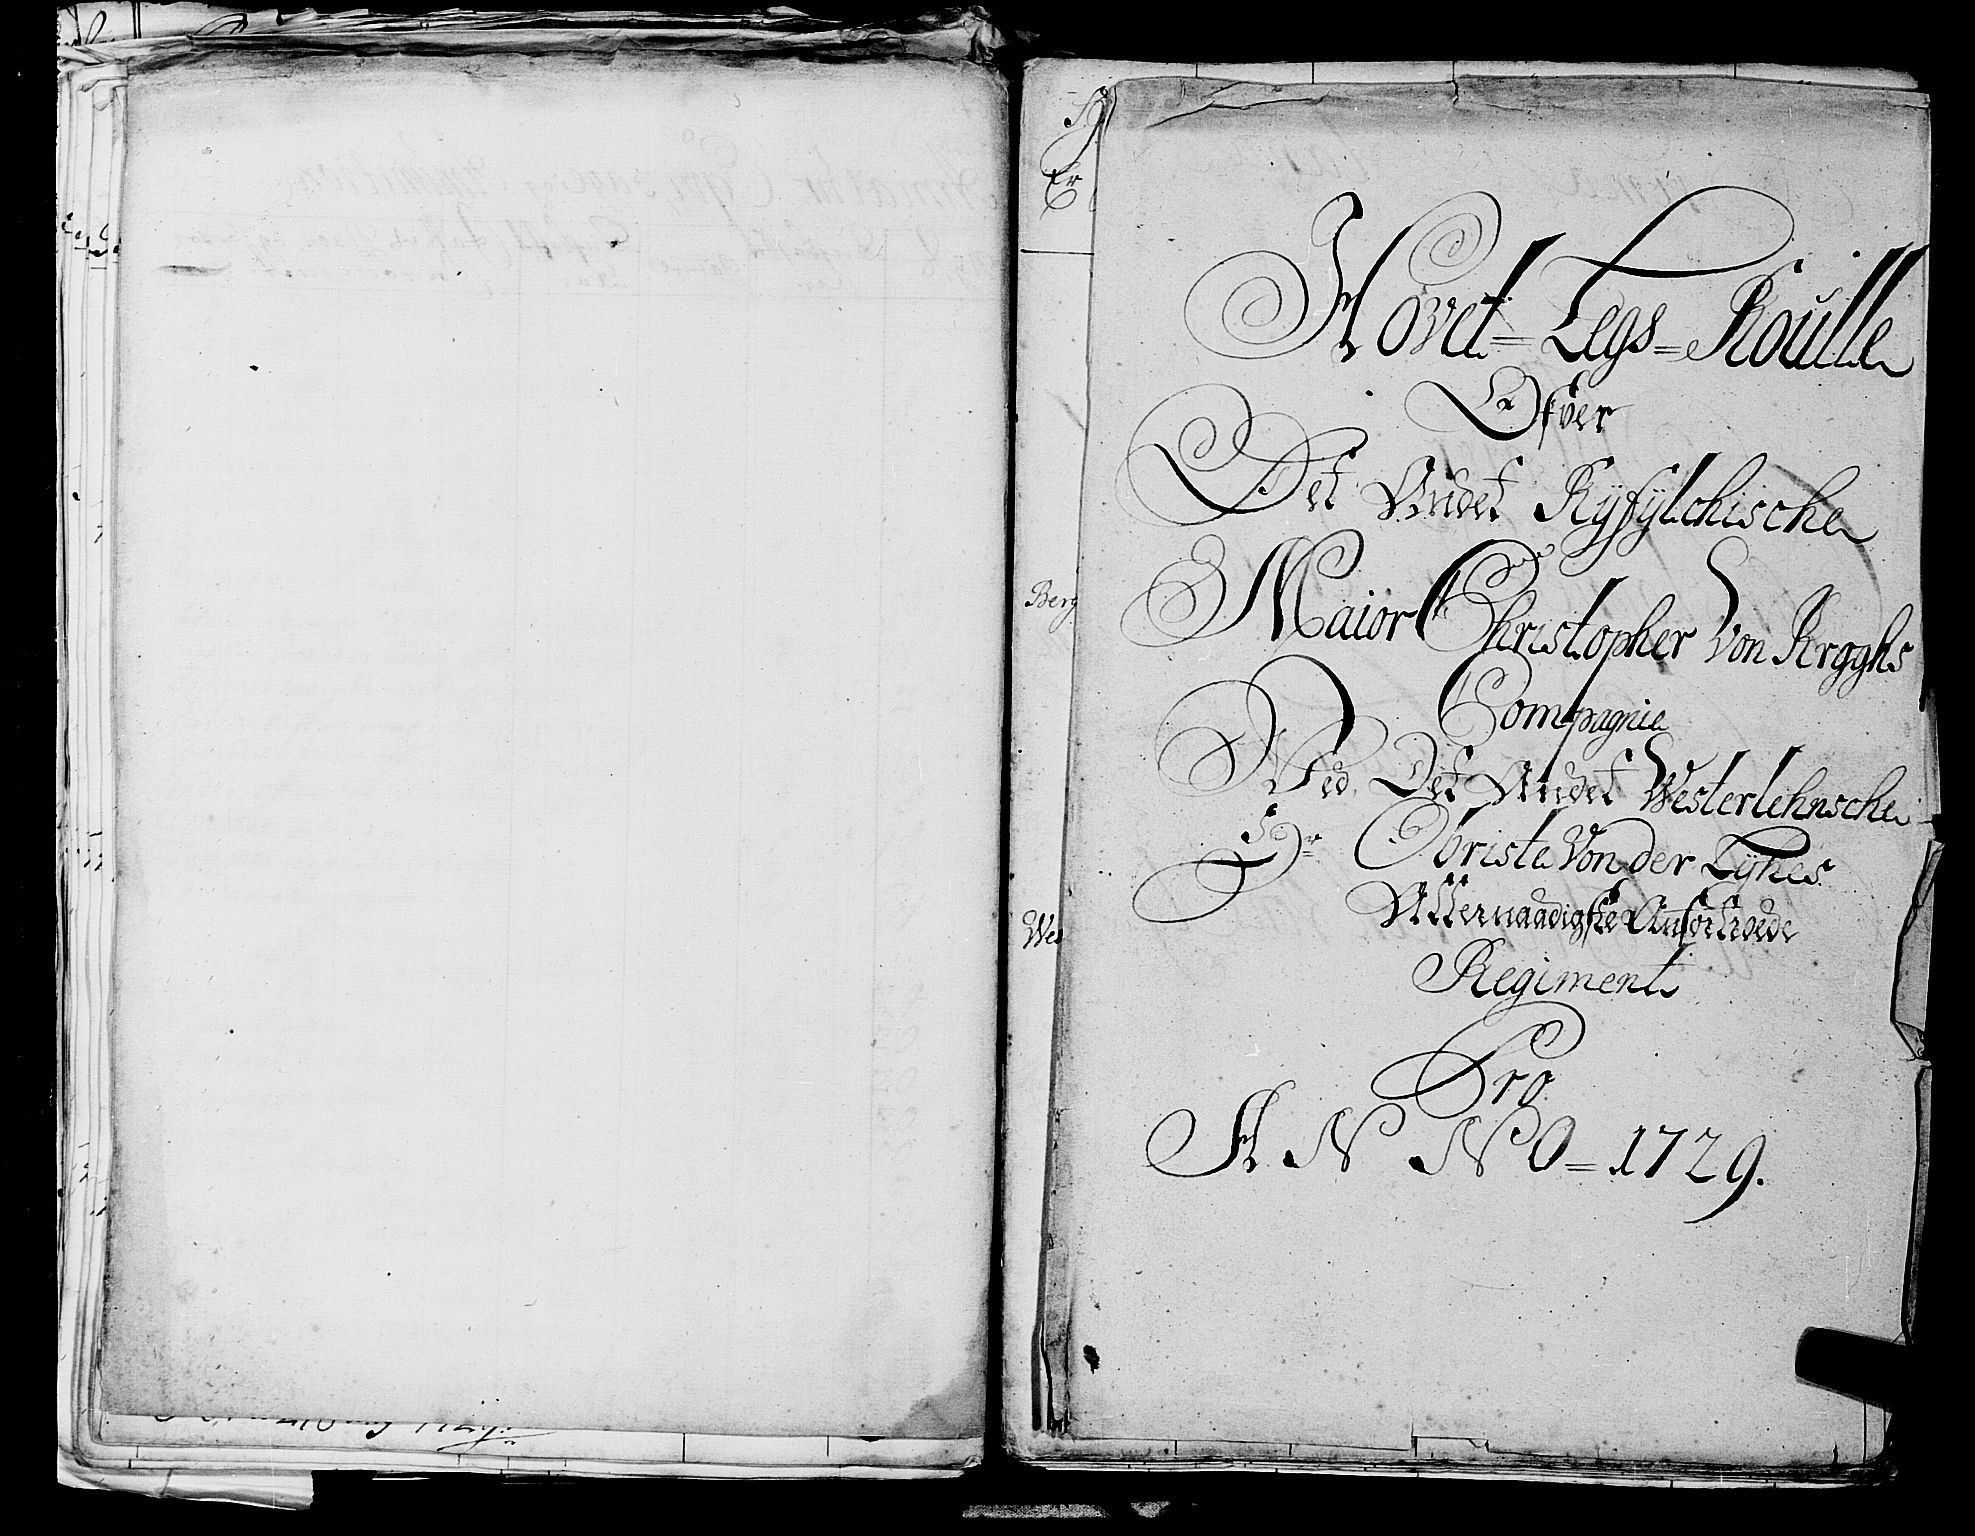 Hovet=Legs=Roulle
Ofver
Det Andet Ryfylchische
Maior Christopher Von Krøghs
Compagnie
Ved Det Andet Westerlehnsche
Hr Obriste Von der Lyhes
Allernaadigste Anfortrode
Regiment
Pro
ANNO=1729.
Er
Berg
Wes